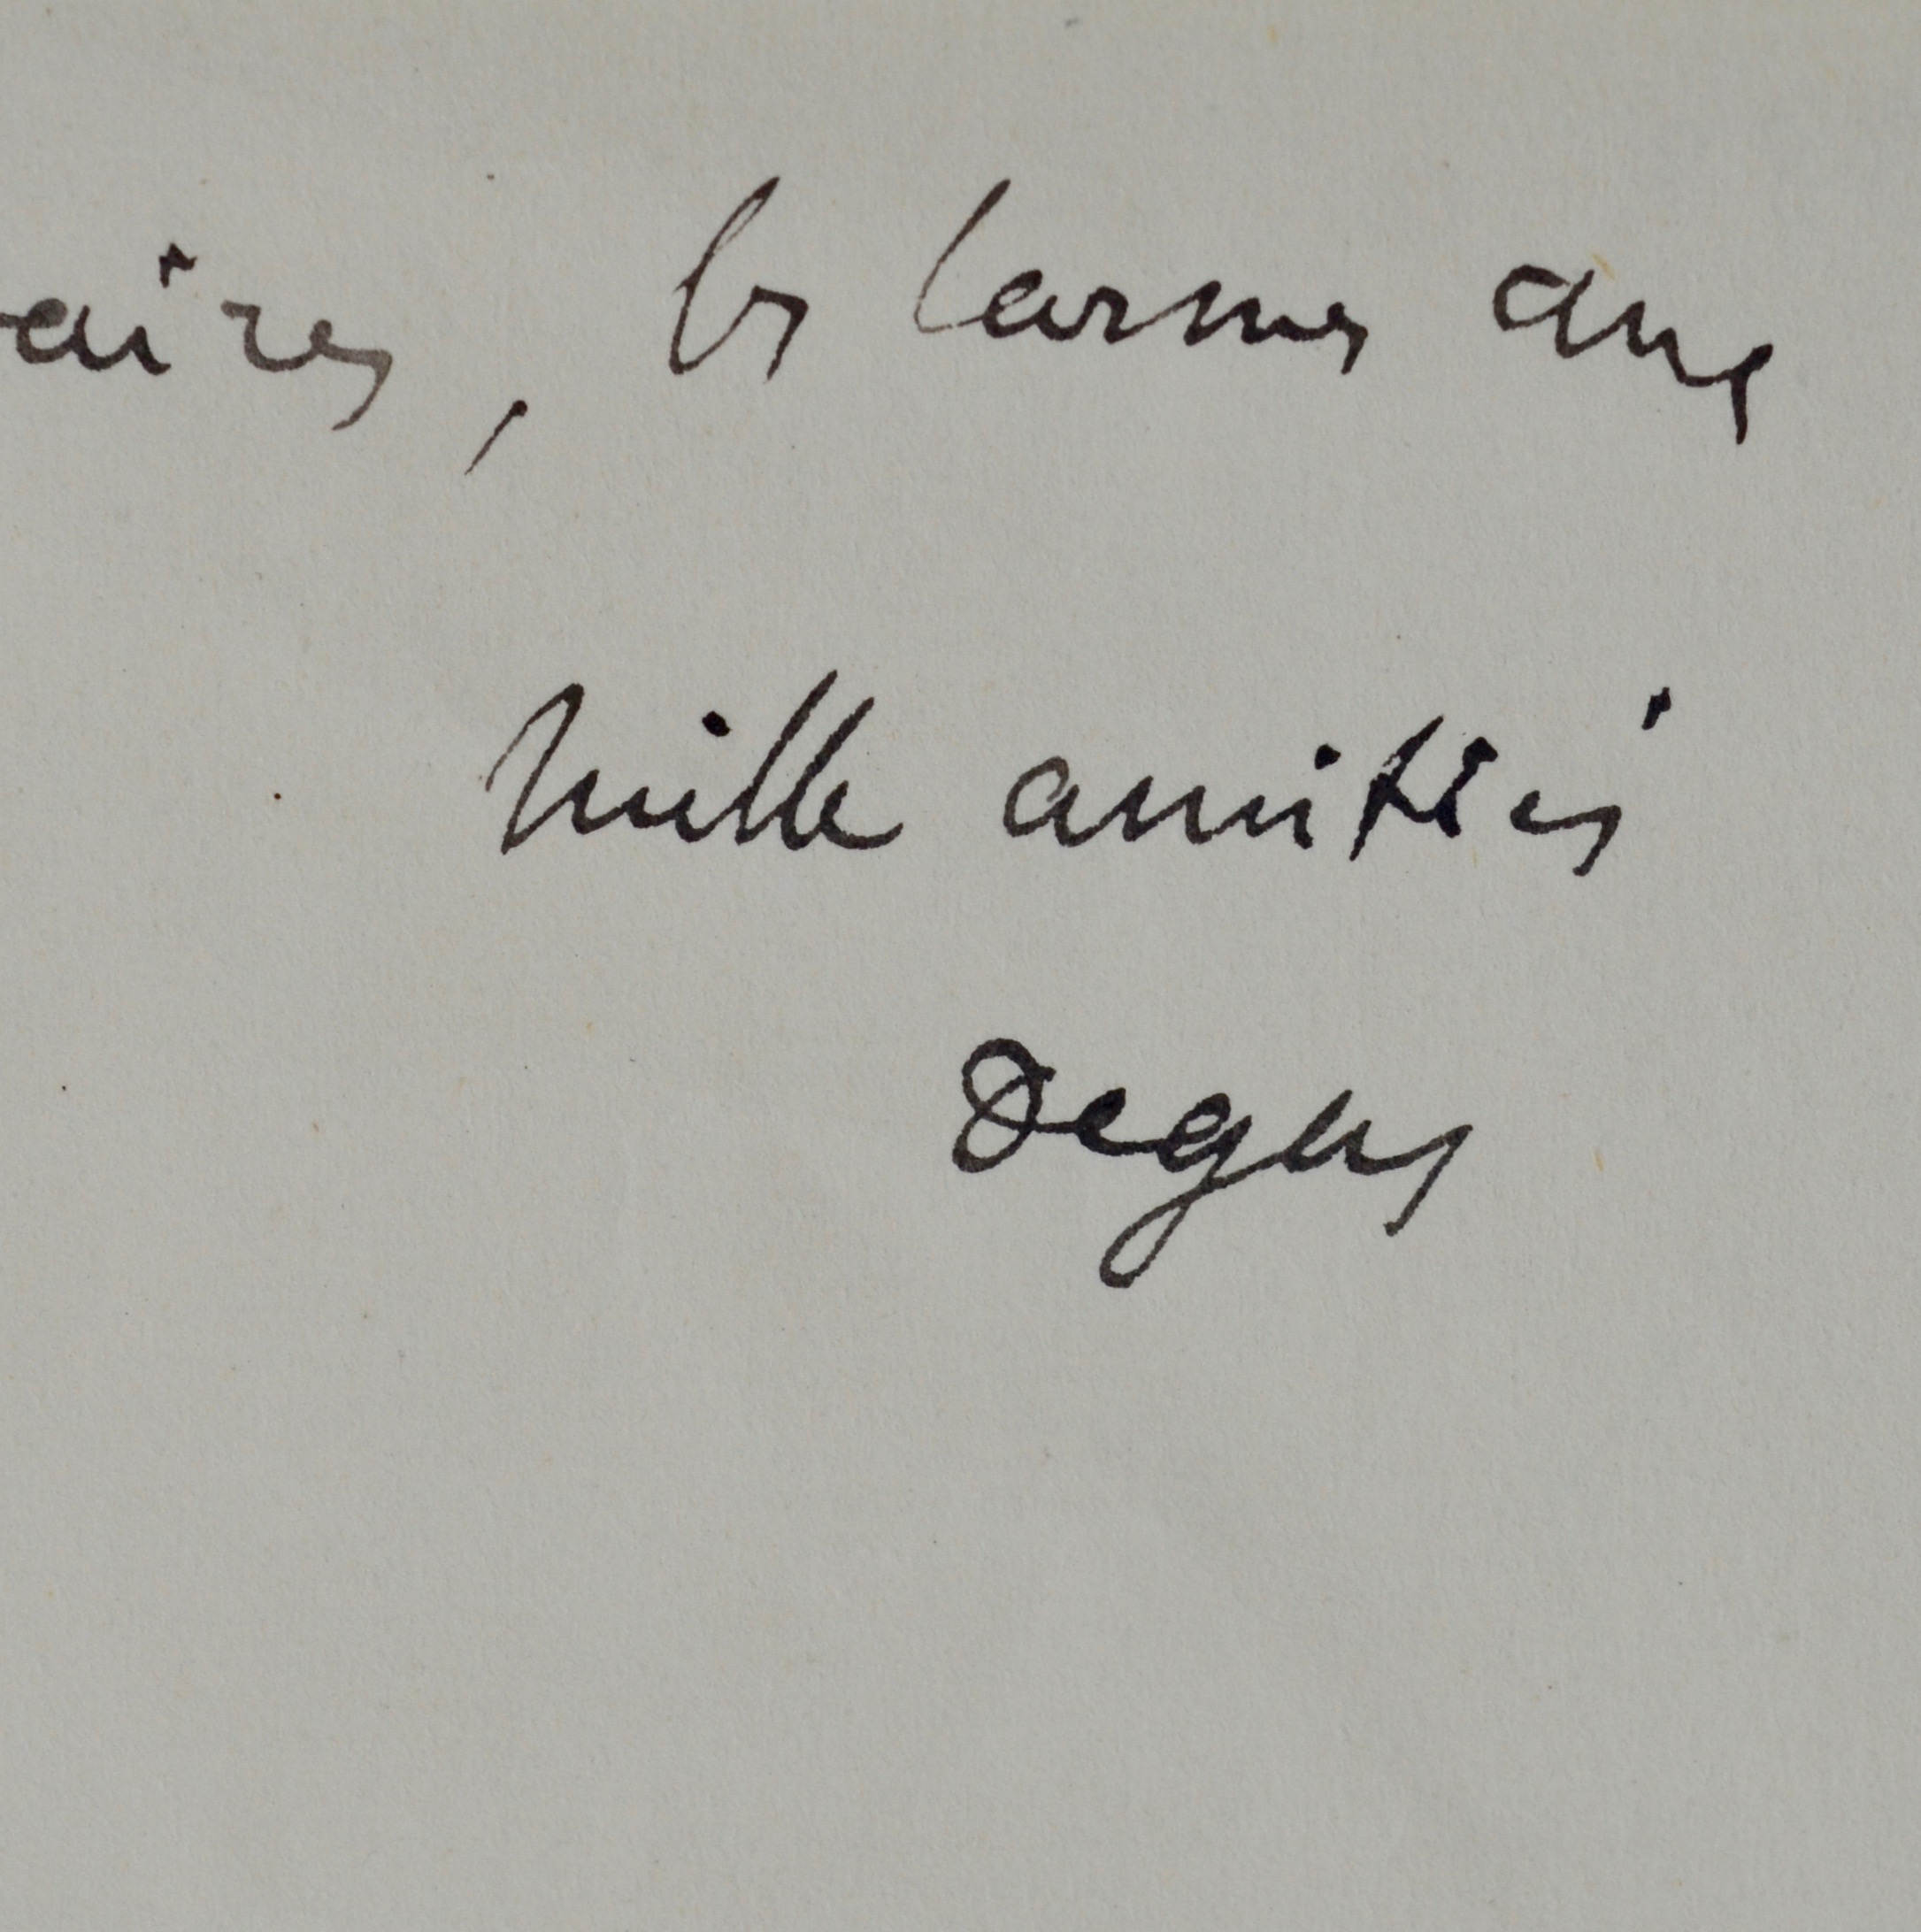 aires, les larmes aux
Mille amitiés
Degas